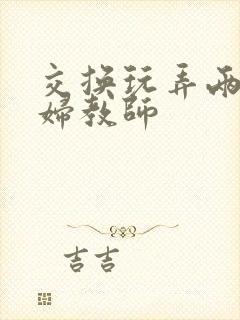 交换玩弄两
婦教師
吉吉